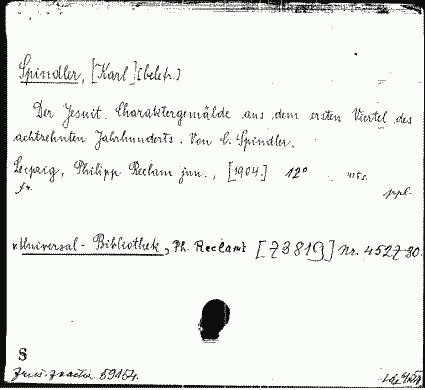 Spindler, [Karl] (beletr.)
Der Jesuit. Charaktergemälde aus dem ersten Viertel des
achtzehnten Jahrhunderts. Von C. Spindler.
Leipzig, Philipp Reclam jun., [1904.] 12° 415 s.
fr. ppb.
Universal-Bibliothek, Ph. Reclams [73819] Nr. 4527-30.
S
59154.